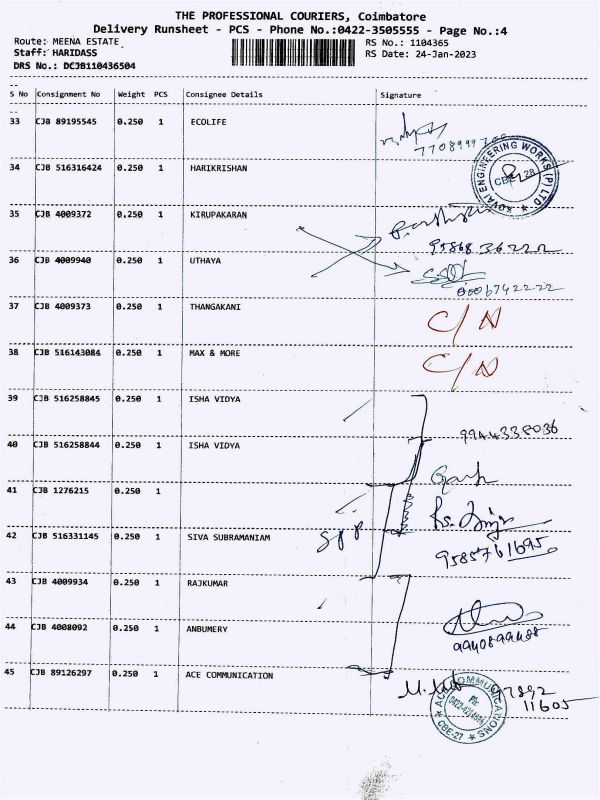 THE PROFESSIONAL COURIERS, Coimbatore
Delivery Runsheet - PCS - Phone No.:0422-3505555 - Page No.:4
Route: MEENA ESTATE
RS No.: 1104365
Staff: HARIDASS
RS Date: 24-Jan-2023
DRS No.: DCJB110436504
S No Consignment No Weight PCS Consignee Details Signature
33 CJB 89195545 0.250 1 ECOLIFE
KOVAI ENGINEERING WORKS (P) LTD.
34 CJB 516316424 0.250 1 HARIKRISHAN
35 CJB 4009372 0.250 1 KIRUPAKARAN
36 CJB 4009940 0.250 1 UTHAYA
37 CJB 4009373 0.250 1 THANGAKANI C/N
38 CJB 516143084 0.250 1 MAX & MORE C/N
39 CJB 516258845 0.250 1 ISHA VIDYA
9944338036
40 CJB 516258844 0.250 1 ISHA VIDYA
41 CJB 1276215 0.250 1
42 CJB 516331145 0.250 1 SIVA SUBRAMANIAM
43 CJB 4009934 0.250 1 RAJKUMAR
44 CJB 4008092 0.250 1 ANBUMERY
45 CJB 89126297 0.250 1 ACE COMMUNICATION
11605
CBE-27